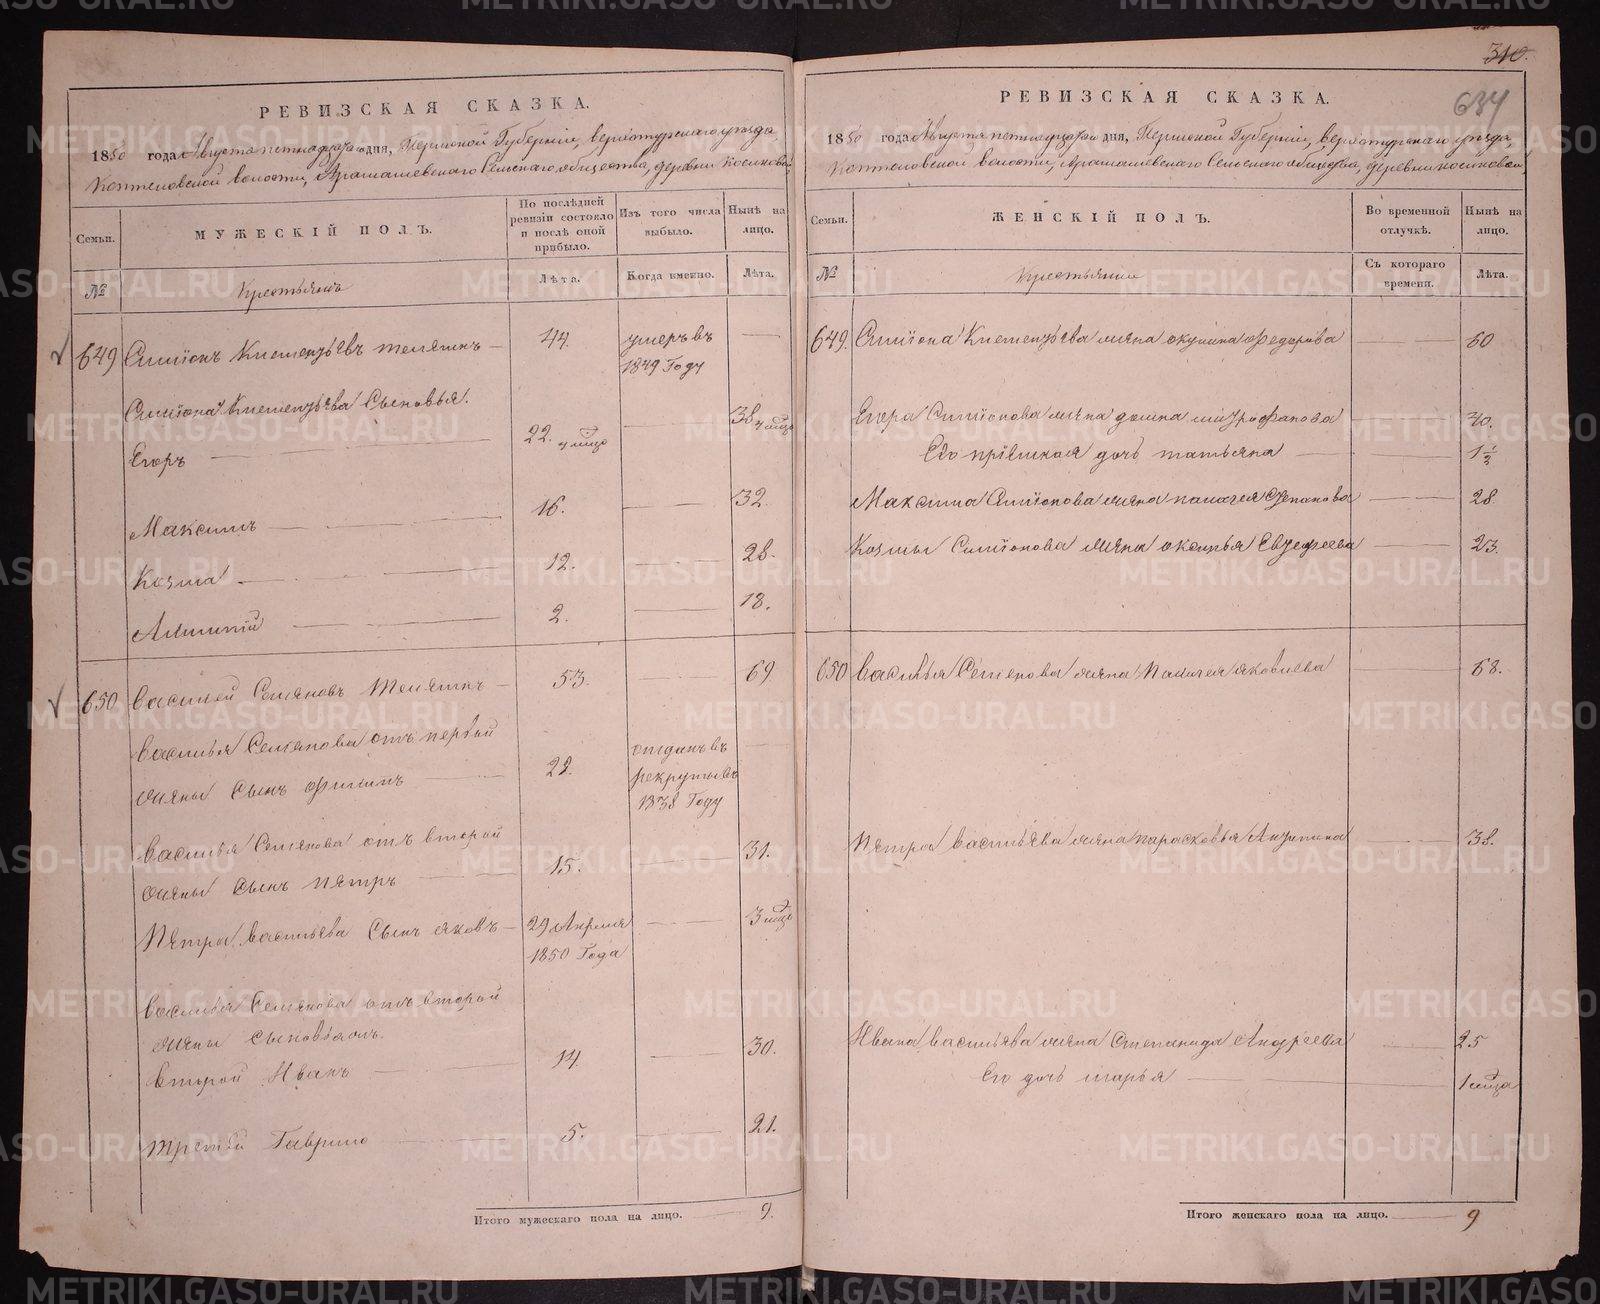 310.
634
РЕВИЗСКАЯ СКАЗКА.
1850 года Августа пятнадцатаго дня, Пермской Губернии, верхотурскаго уезда,
Коптеловской волости, Арамашевскаго Сельскаго общества, деревни косиковой
Семьи.
МУЖЕСКІЙ ПОЛЪ.
По послѣдней ревизіи состояло и послѣ оной прибыло.
Изъ того числа выбыло.
Нынѣ на лицо.
№
Крестьянъ
Лѣта.
Когда именно.
Лѣта.
649 Симіонъ Клементьевъ телятин 44. умеръ въ 1849 Году
Симіона Клементьева Сыновья.
Егоръ 22. 38
Максимъ 16. 32.
Козма 12. 28.
2. 18.
650 василей Семяновъ Телятин 53. 69
василья Семянова отъ первой
жены Сынъ филипъ 22. отданъ въ рекруты въ 1838 Году
василья Семянова отъ второй
жены Сынъ Пятръ 15. 31.
Пятра васильева Сынъ яковъ 29 Апреля 1850 Года 3
василья Семянова отъ второй
жены
второй Иванъ 14. 30.
третей Гаврило 5. 21.
Итого мужескаго пола на лицо. 9.
РЕВИЗСКАЯ СКАЗКА.
1850 года Августа пятнадцатаго дня, Пермской Губерніи, верхотурскаго уезда,
Коптеловской волости, Арамашевскаго Сельскаго общества, деревни косиковой
Семьи.
ЖЕНСКІЙ ПОЛЪ.
Во временной отлучкѣ.
Нынѣ на лицо.
№
Съ котораго времени.
Лѣта.
649. Симіона Клементьева жена акулина Федорова 60
Егора Симіонова жена домна митрофанова 40.
Его дочь татьяна 1 1/2
Максима Симіонова жена палагея Степанова 28.
Козмы Симіонова жена 23.
650 василья Семенова жена Палагея яковлева 68.
Пятра васильева жена парасковья 38.
Ивана васильева жена Степанида Андреева 25
Его дочь марья 1
Итого женскаго пола на лицо. 9
METRIKI.GASO-URAL.RU